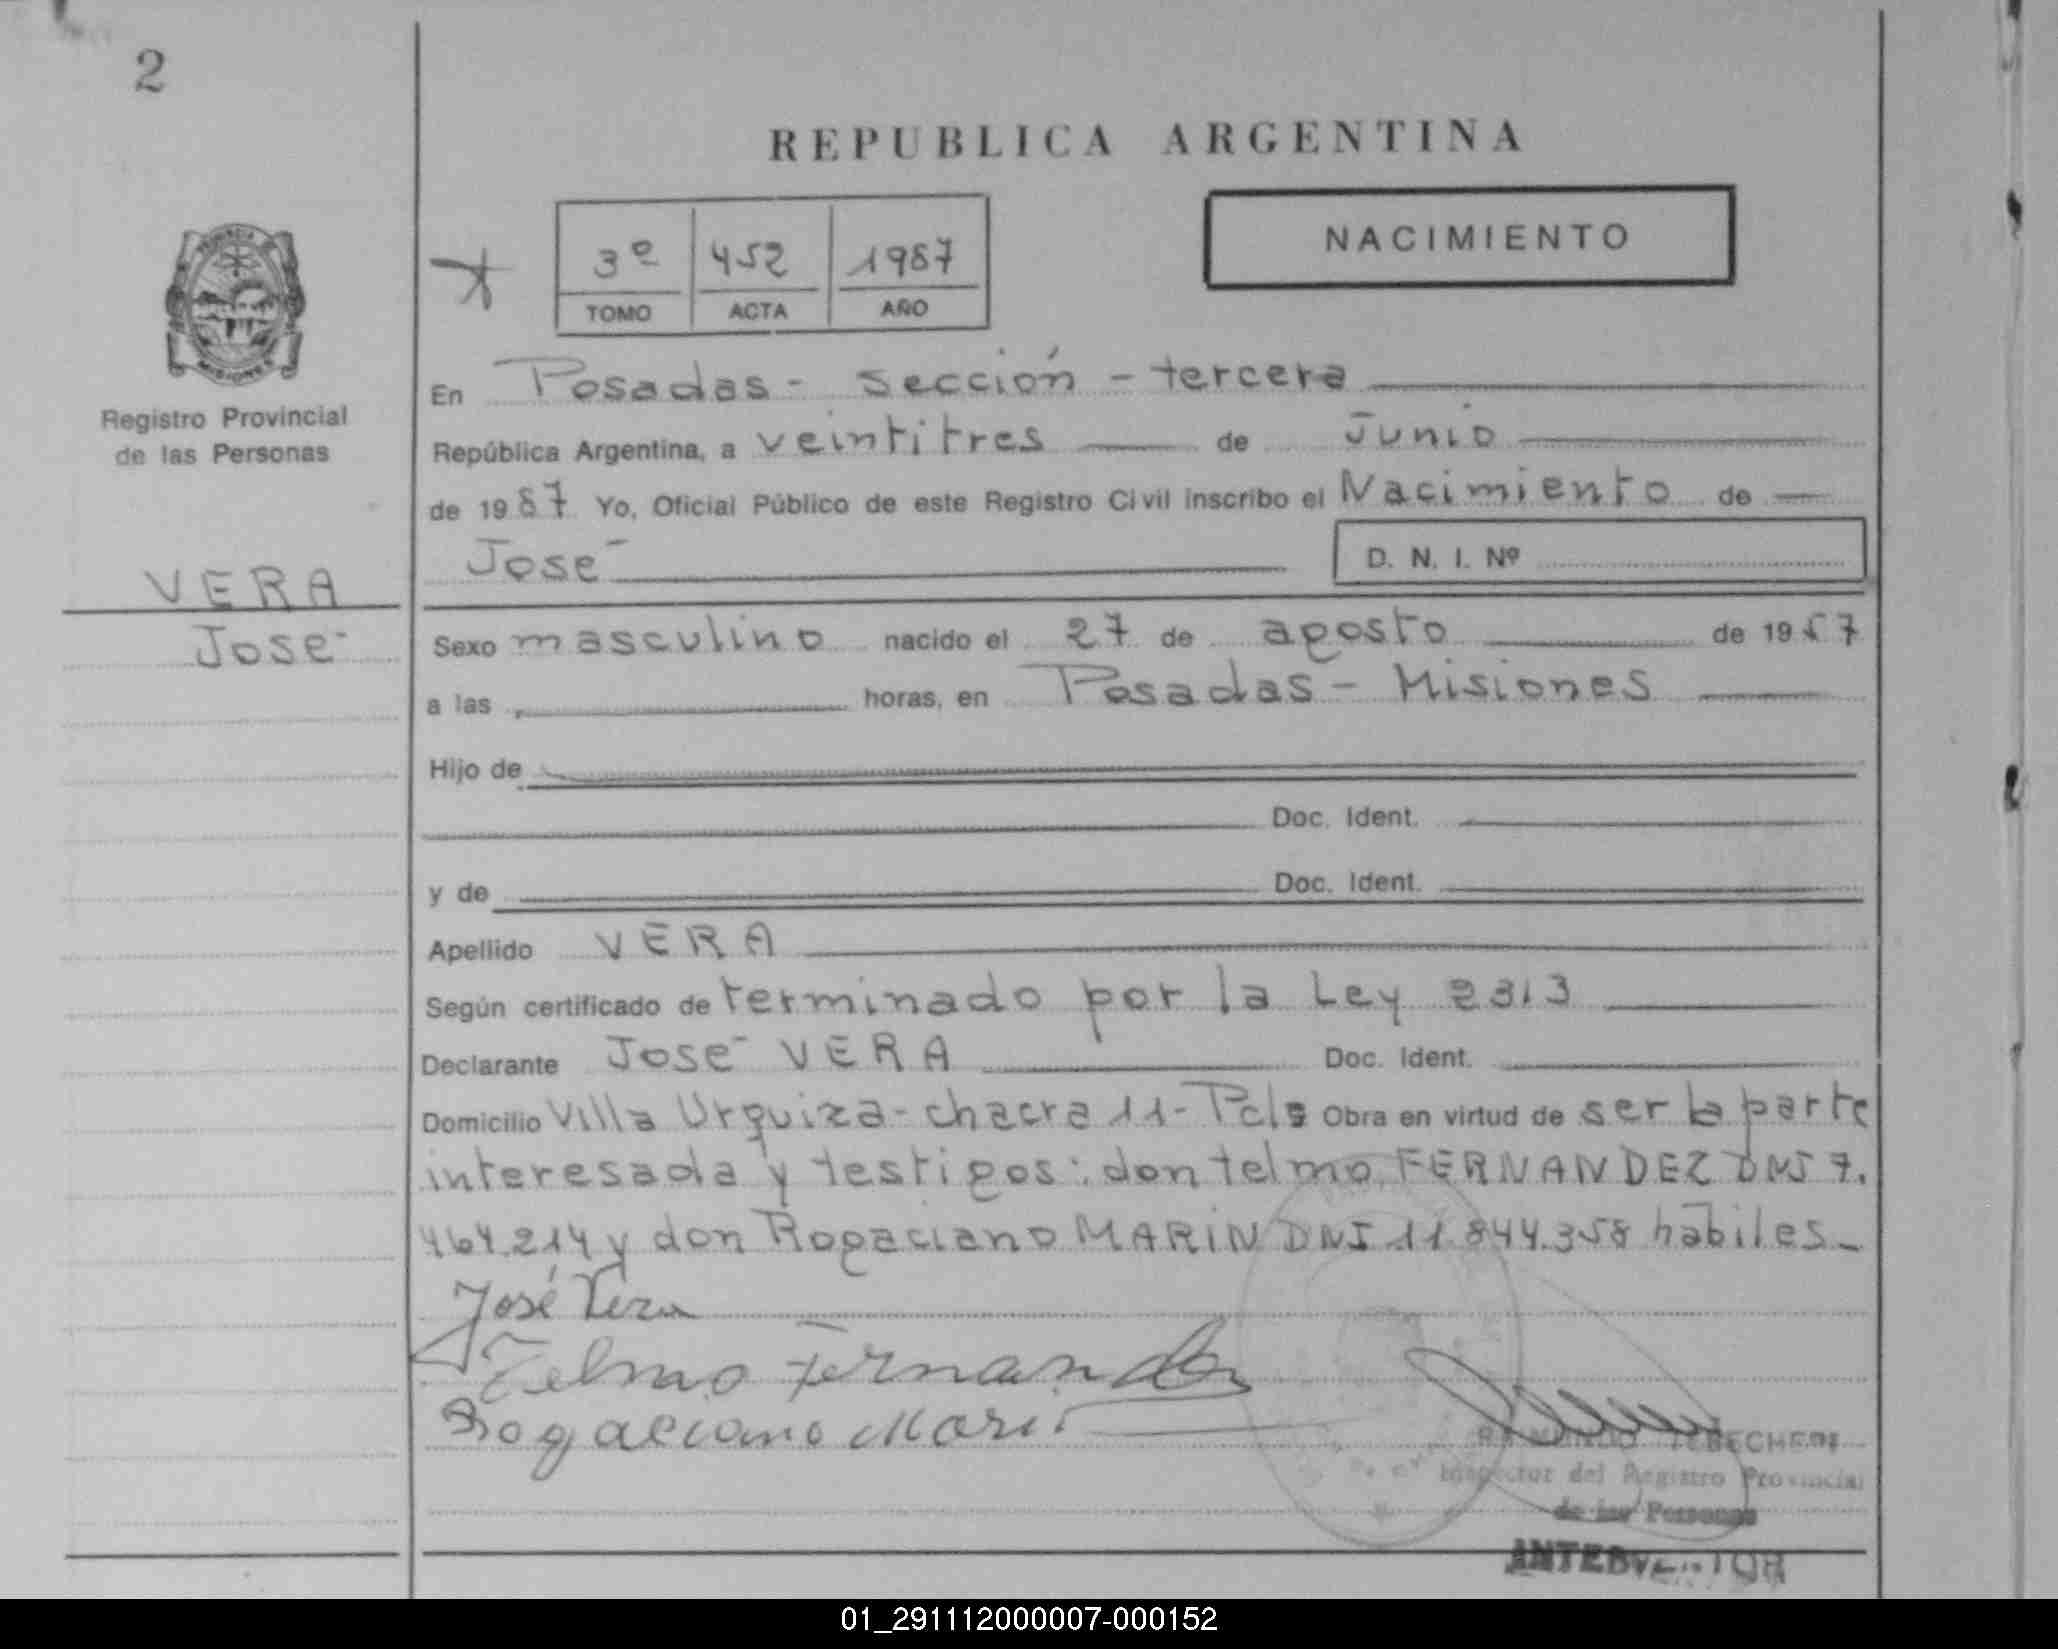 2
REPUBLICA ARGENTINA
NACIMIENTO
3º 452 1987
TOMO ACTA AÑO
PROVINCIA DE
MISIONES
Registro Provincial
de las Personas
VERA
José
En Posadas - sección - tercera
República Argentina, a veintitres de Junio
de 1987 Yo, Oficial Público de este Registro Civil inscribo el Nacimiento de
José D. N. I. Nº
Sexo masculino nacido el 27 de agosto de 19 7
a las horas, en Posadas - Misiones
Hijo de
Doc. Ident.
y de Doc. Ident.
Apellido VERA
Según certificado de terminado por la Ley 2313
Declarante José VERA Doc. Ident.
Domicilio Villa Urquiza - chacra 11 - Pcls Obra en virtud de ser la parte
interesada y testigos: don telmo FERNANDEZ DNI 7.
464.214 y don Rogaciano MARIN DNI 11.844.358 habiles_
José Vera
Telmo Fernandez
Rogaciano Marin
RAIMUNDO TEBECHERI
Inspector del Registro Provincial
de las Personas
01_291112000007-000152